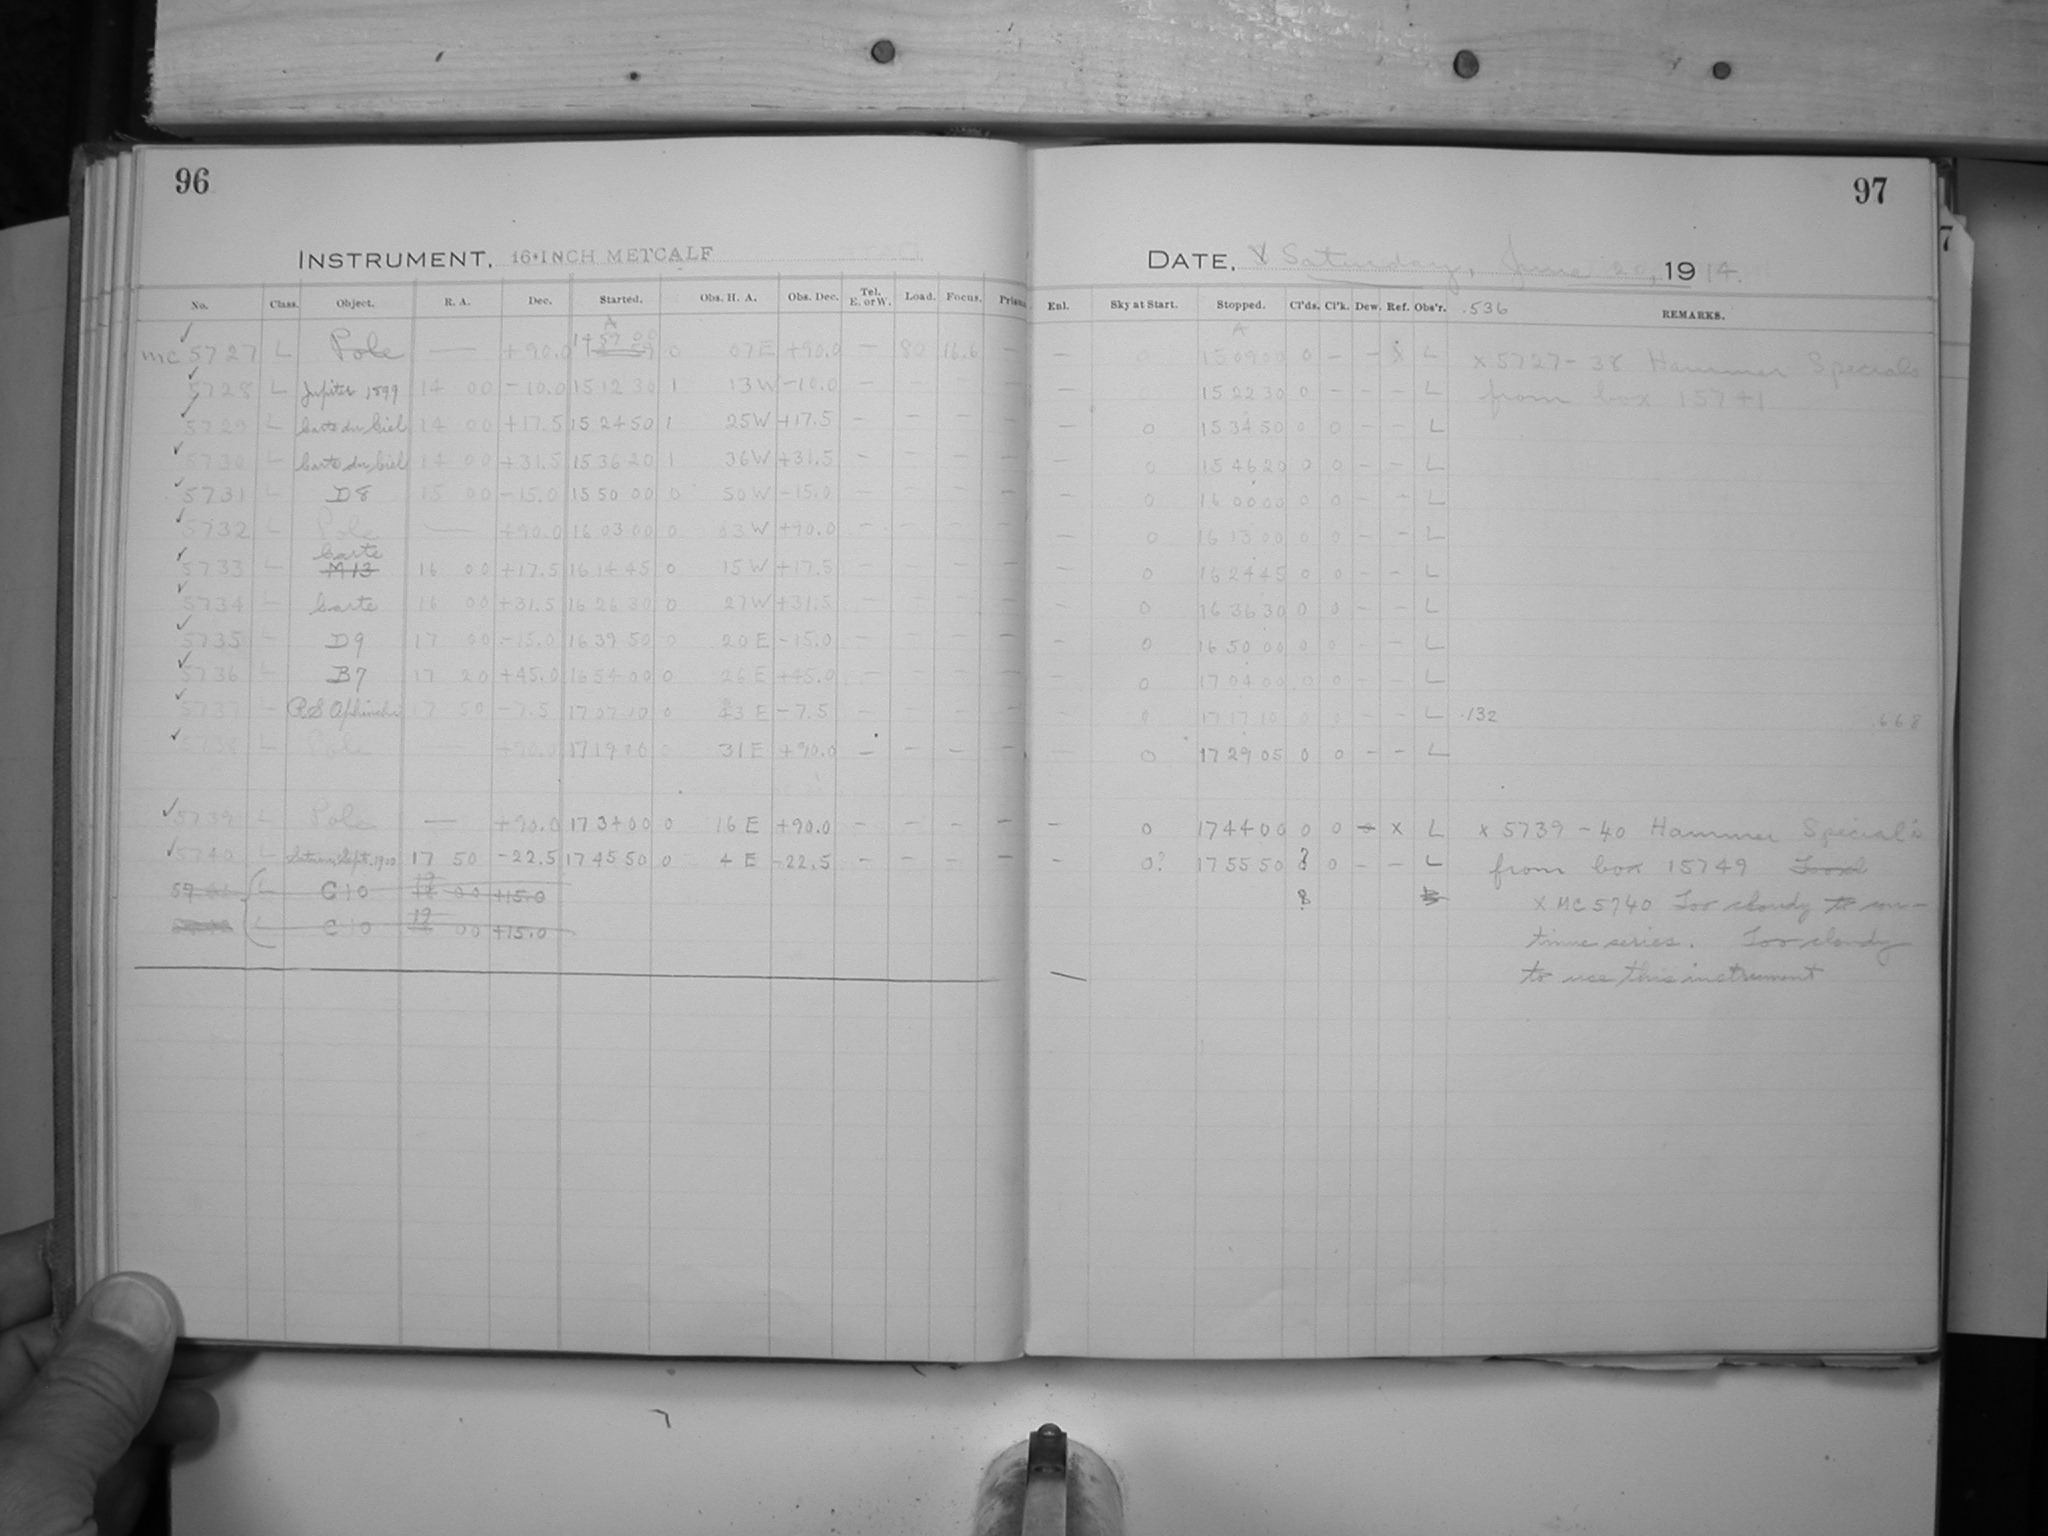 96
INSTRUMENT, 16-INCH METCALF
No. Class. Object. R. A. Dec. Started. Obs. H. A. Obs. Dec. Tel. E. or W. Load. Focus. Prism
A
14 57 00
mc 5727 L Pole — +90.0 0 07 E +90.0 — 80 16.6 —
5728 L Jupiter 1899 14 00 -10.0 15 12 30 1 13 W -10.0 — — — —
5729 L Carte du Ciel 14 00 +17.5 15 24 50 1 25 W +17.5 — — — —
5730 L Carte du Ciel 14 00 +31.5 15 36 20 1 36 W +31.5 — — — —
5731 L D8 15 00 -15.0 15 50 00 0 50 W -15.0 — — — —
5732 L Pole — +90.0 16 03 00 0 W +90.0 — — — —
Carte
5733 L M13 16 00 +17.5 16 14 45 0 15 W +17.5 — — — —
5734 L Carte 16 00 +31.5 16 26 30 0 27 W +31.5 — — — —
5735 L D9 17 00 -15.0 16 39 50 0 20 E -15.0 — — — —
5736 L B7 17 20 +45.0 16 54 00 0 26 E +45.0 — — — —
5737 L RS Ophiuchi 17 50 -7.5 17 07 10 0 43 E -7.5 — — — —
5738 L Pole — +90.0 17 19 0 31 E +90.0 — — — —
5739 L Pole — +90.0 17 34 00 0 16 E +90.0 — — — —
5740 L Saturn Sept. 1900 17 50 -22.5 17 45 50 0 4 E -22.5 — — — —
L C10 19 00 +15.0
L C10 19 00 +15.0
97
DATE, Saturday, June 20, 1914.
Enl. Sky at Start. Stopped. Cl'ds. Cl'k. Dew. Ref. Obs'r. .536 REMARKS.
A
— 0 15 09 00 0 — — x L x 5727-38 Hammer Specials
— 15 22 30 0 — — — L from box 15741
— 0 15 34 50 0 0 — — L
— 0 15 46 20 0 0 — — L
— 0 16 00 00 0 0 — — L
— 0 16 13 00 0 0 — — L
— 0 16 24 45 0 0 — — L
— 0 16 36 30 0 0 — — L
— 0 16 50 00 0 0 — — L
0 17 04 00 0 0 — — L
0 17 17 10 0 0 — — L .132 .668
0 17 29 05 0 0 — — L
— 0 17 44 00 0 0 — x L x 5739-40 Hammer Special's
0? 17 55 50 ? 0 — — L from box 15749
x MC 5740 Too cloudy to con-
tinue series. Too cloudy
to use this instrument
7